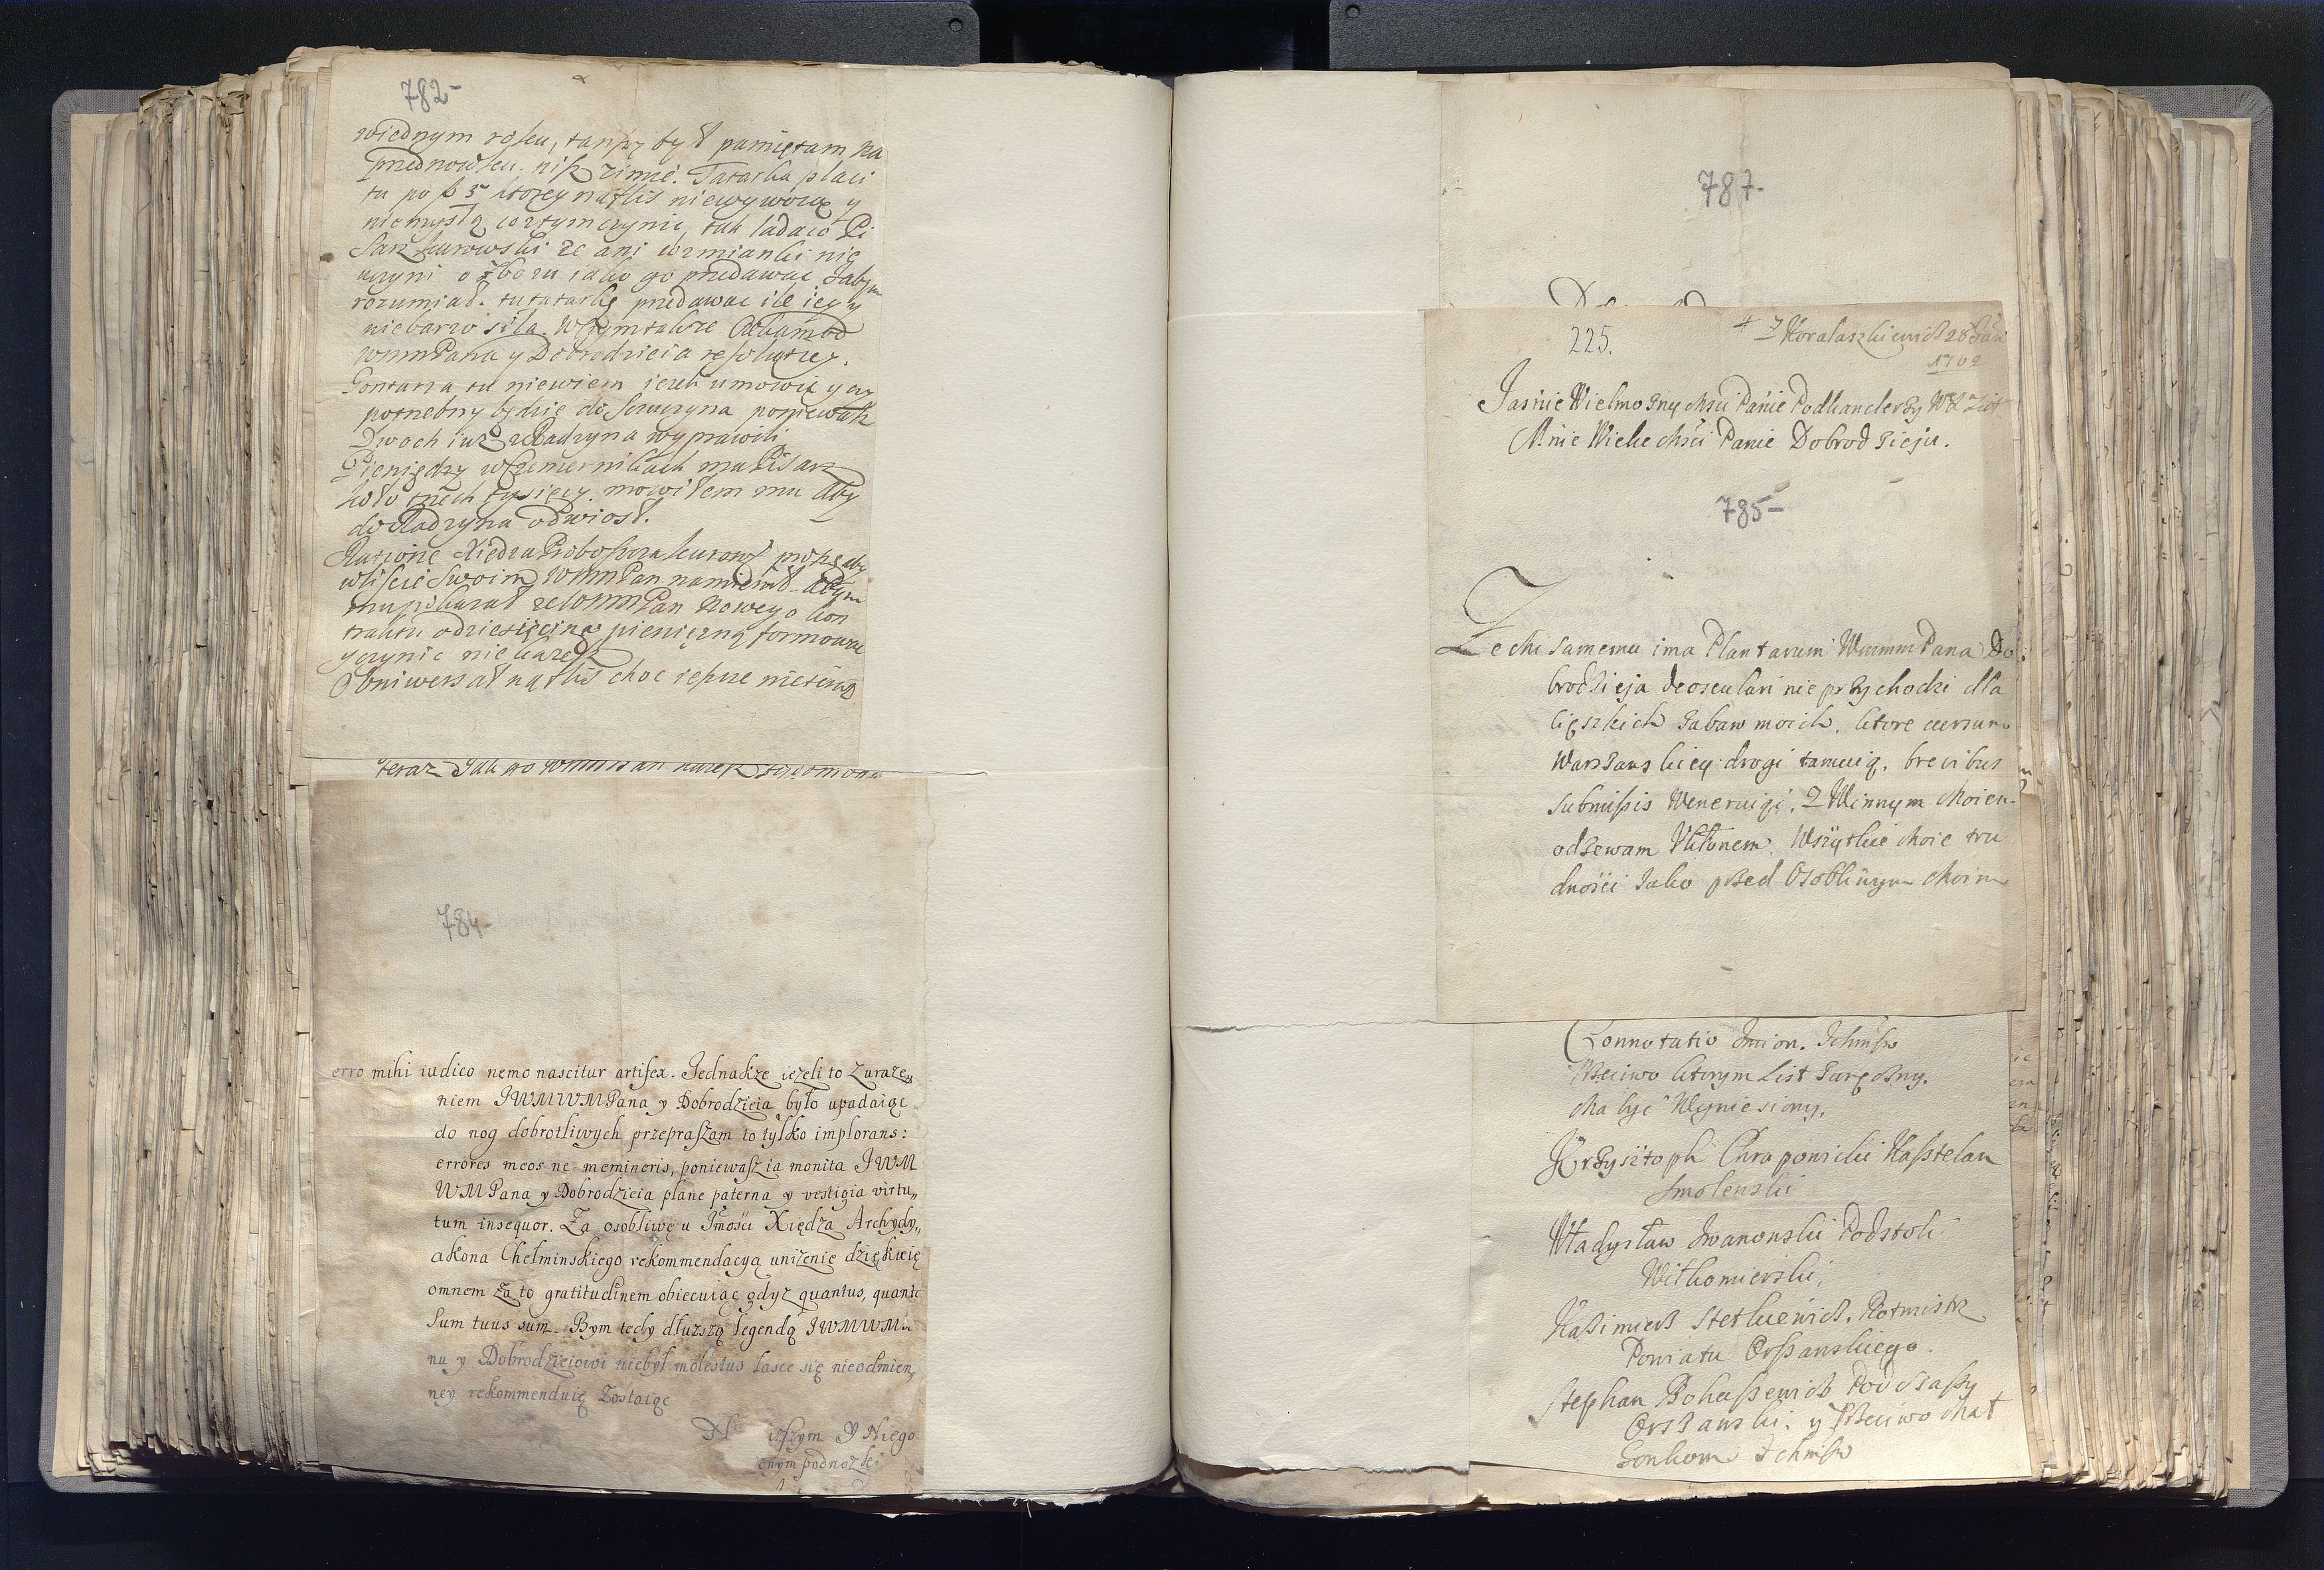 782-
wiednym roku, tanszy był pamiętam na
przednowku. niß zimie. Tatarka płaci
tu po ß 5 ktorey na flis niewywożą y
niemyslą co z tym czynic, tak ladaco Pi
sarz kurowski ze ani wzmianki nie
uczyni o zbozu iako go przedawac Jabym
rozumiał. tu tatarkę przedawac ile iey y
niebarzo siła. W czym także czekam od
WMMPana y Dobrodzieia resolutiey.
tu niewiem iezeli umowię y czy
potrzebny będzie do poniewaß
Dwoch iuz z Radzyna wyprawili
Pieniędzy w Czemiernikach ma Pisarz
koło trzech tysięcy. mowiłem mu aby
do Radzyna odwiosł.
Ratione Xiedza Proboscza kurows proszę aby
w liscie swoim WMMPan namienił abym
mu pokazał ze WMMPan nowego kon
traktu o dziesięcinę pienięzną formowac
y czynic nie każesz
Uniwersał na flis choc iescze
teraz Jak go WMMPan każesz
784-
erro mihi iudico nemo nascitur artifex. Jednakze iezeli to z uraze,,
niem JWMWMPana y Dobrodzieia było upadaiąc
do nog dobrotliwych przepraszam to tylko implorans:
errores meos ne memineris, poniewasz ia monita JWM
WMPana y Dobrodzieia plane paterna y vestigia virtu,,
tum insequor. Za osobliwę u Jmości Xiędza Archydy,,
akona Chełminskiego rekommendacyą unizenie dziękuię
omnem za to gratitudinem obiecuiąc gdyz quantus, quantꝰ
sum tuus sum. Bym tedy dłuzszą legendą JWMWM
nu y Dobrodzieiowi niebył molestus łasce się nieodmien,,
ney rekommenduię zostaiąc
iszym Y Niego
znym podnozki
787-
225.
+ Z 28 Jan
1702
Jasnie Wielmozny Mści Panie Podkanclerzy WX Lit
Mnie Wielce Mści Panie Dobrodzieju.
785-
Ze Mi samemu ima Plantarum WMMMPana Do
brodzieja deosculari nie przychodzi dla
cięszkich zabaw moich, ktore cursum
Warszawskiey drogi tamuią, brevibus
submissis Weneruiąc, z Winnym Moiem
odzewam Ukłonem. Wszytkie Moie tru
dności Jako przed Osobliwym Moim
Connotatio Imion. Ichmsw
Przeciwo ktorym List zaręczny.
Ma byc Wyniesiony,
Krzysztoph Chrapowicki Kasztelan
Smolenski
Władysław Iwanowski Podstoli
Wiłkomierski,
Kazimierz Stetkiewicz, Rotmistrz
Powiatu Orszanskiego.
Stephan Bohuszewicz Podczaszy
Orszanski. y Przeciwo Mał
żonkom Ichmsw